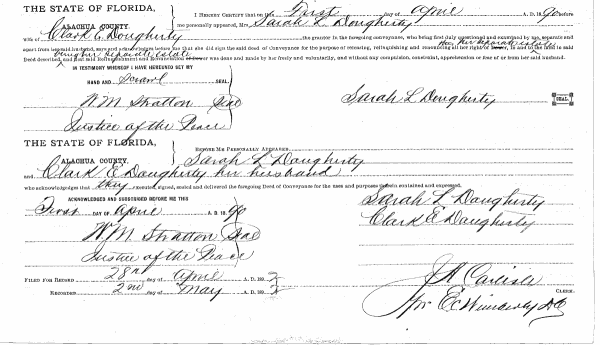 THE STATE OF FLORIDA,
ALACHUA COUNTY.
I HEREBY CERTIFY that on the First day of April A. D. 1890 before
me personally appeared, Mrs. Sarah L. Dougherty
wife of Clark E. Dougherty the grantor in the foregoing conveyance, who being first duly questioned and examined by me, separate and
apart from her said husband, sure and acknowledges before me that she did sign the said deed of Conveyance for the purpose of releasing, relinquishing and renouncing all her right in and to the land in said
being her separate estate
Deed described, and that said Relinquishment and Renunciation was done and made by her freely and voluntarily, and without any compulsion, constraint, apprehension or fear of or from her said husband.
IN TESTIMONY WHEREOF I HAVE HEREUNTO SET MY
HAND AND Scrawl SEAL.
W. M. Stratton Seal
Justice of the Peace
Sarah L Dougherty SEAL.
THE STATE OF FLORIDA,
ALACHUA COUNTY.
BEFORE ME PERSONALLY APPEARED
Sarah L Daugherty
and Clark E Daugherty her husband
who acknowledges that they executed, signed, sealed and delivered the foregoing Deed of Conveyance for the uses and purposes therein contained and expressed.
ACKNOWLEDGED AND SUBSCRIBED BEFORE ME THIS
First DAY OF April A. D. 1890
Sarah L Daugherty
Clark E Daugherty
W. M. Stratton Seal
Justice of the Peace
FILED FOR RECORD 28th day of April A. D. 1892
RECORDED 2nd day of May A. D. 1892
J A Carlisle
CLERK.
pr E C Wimberly D.C.